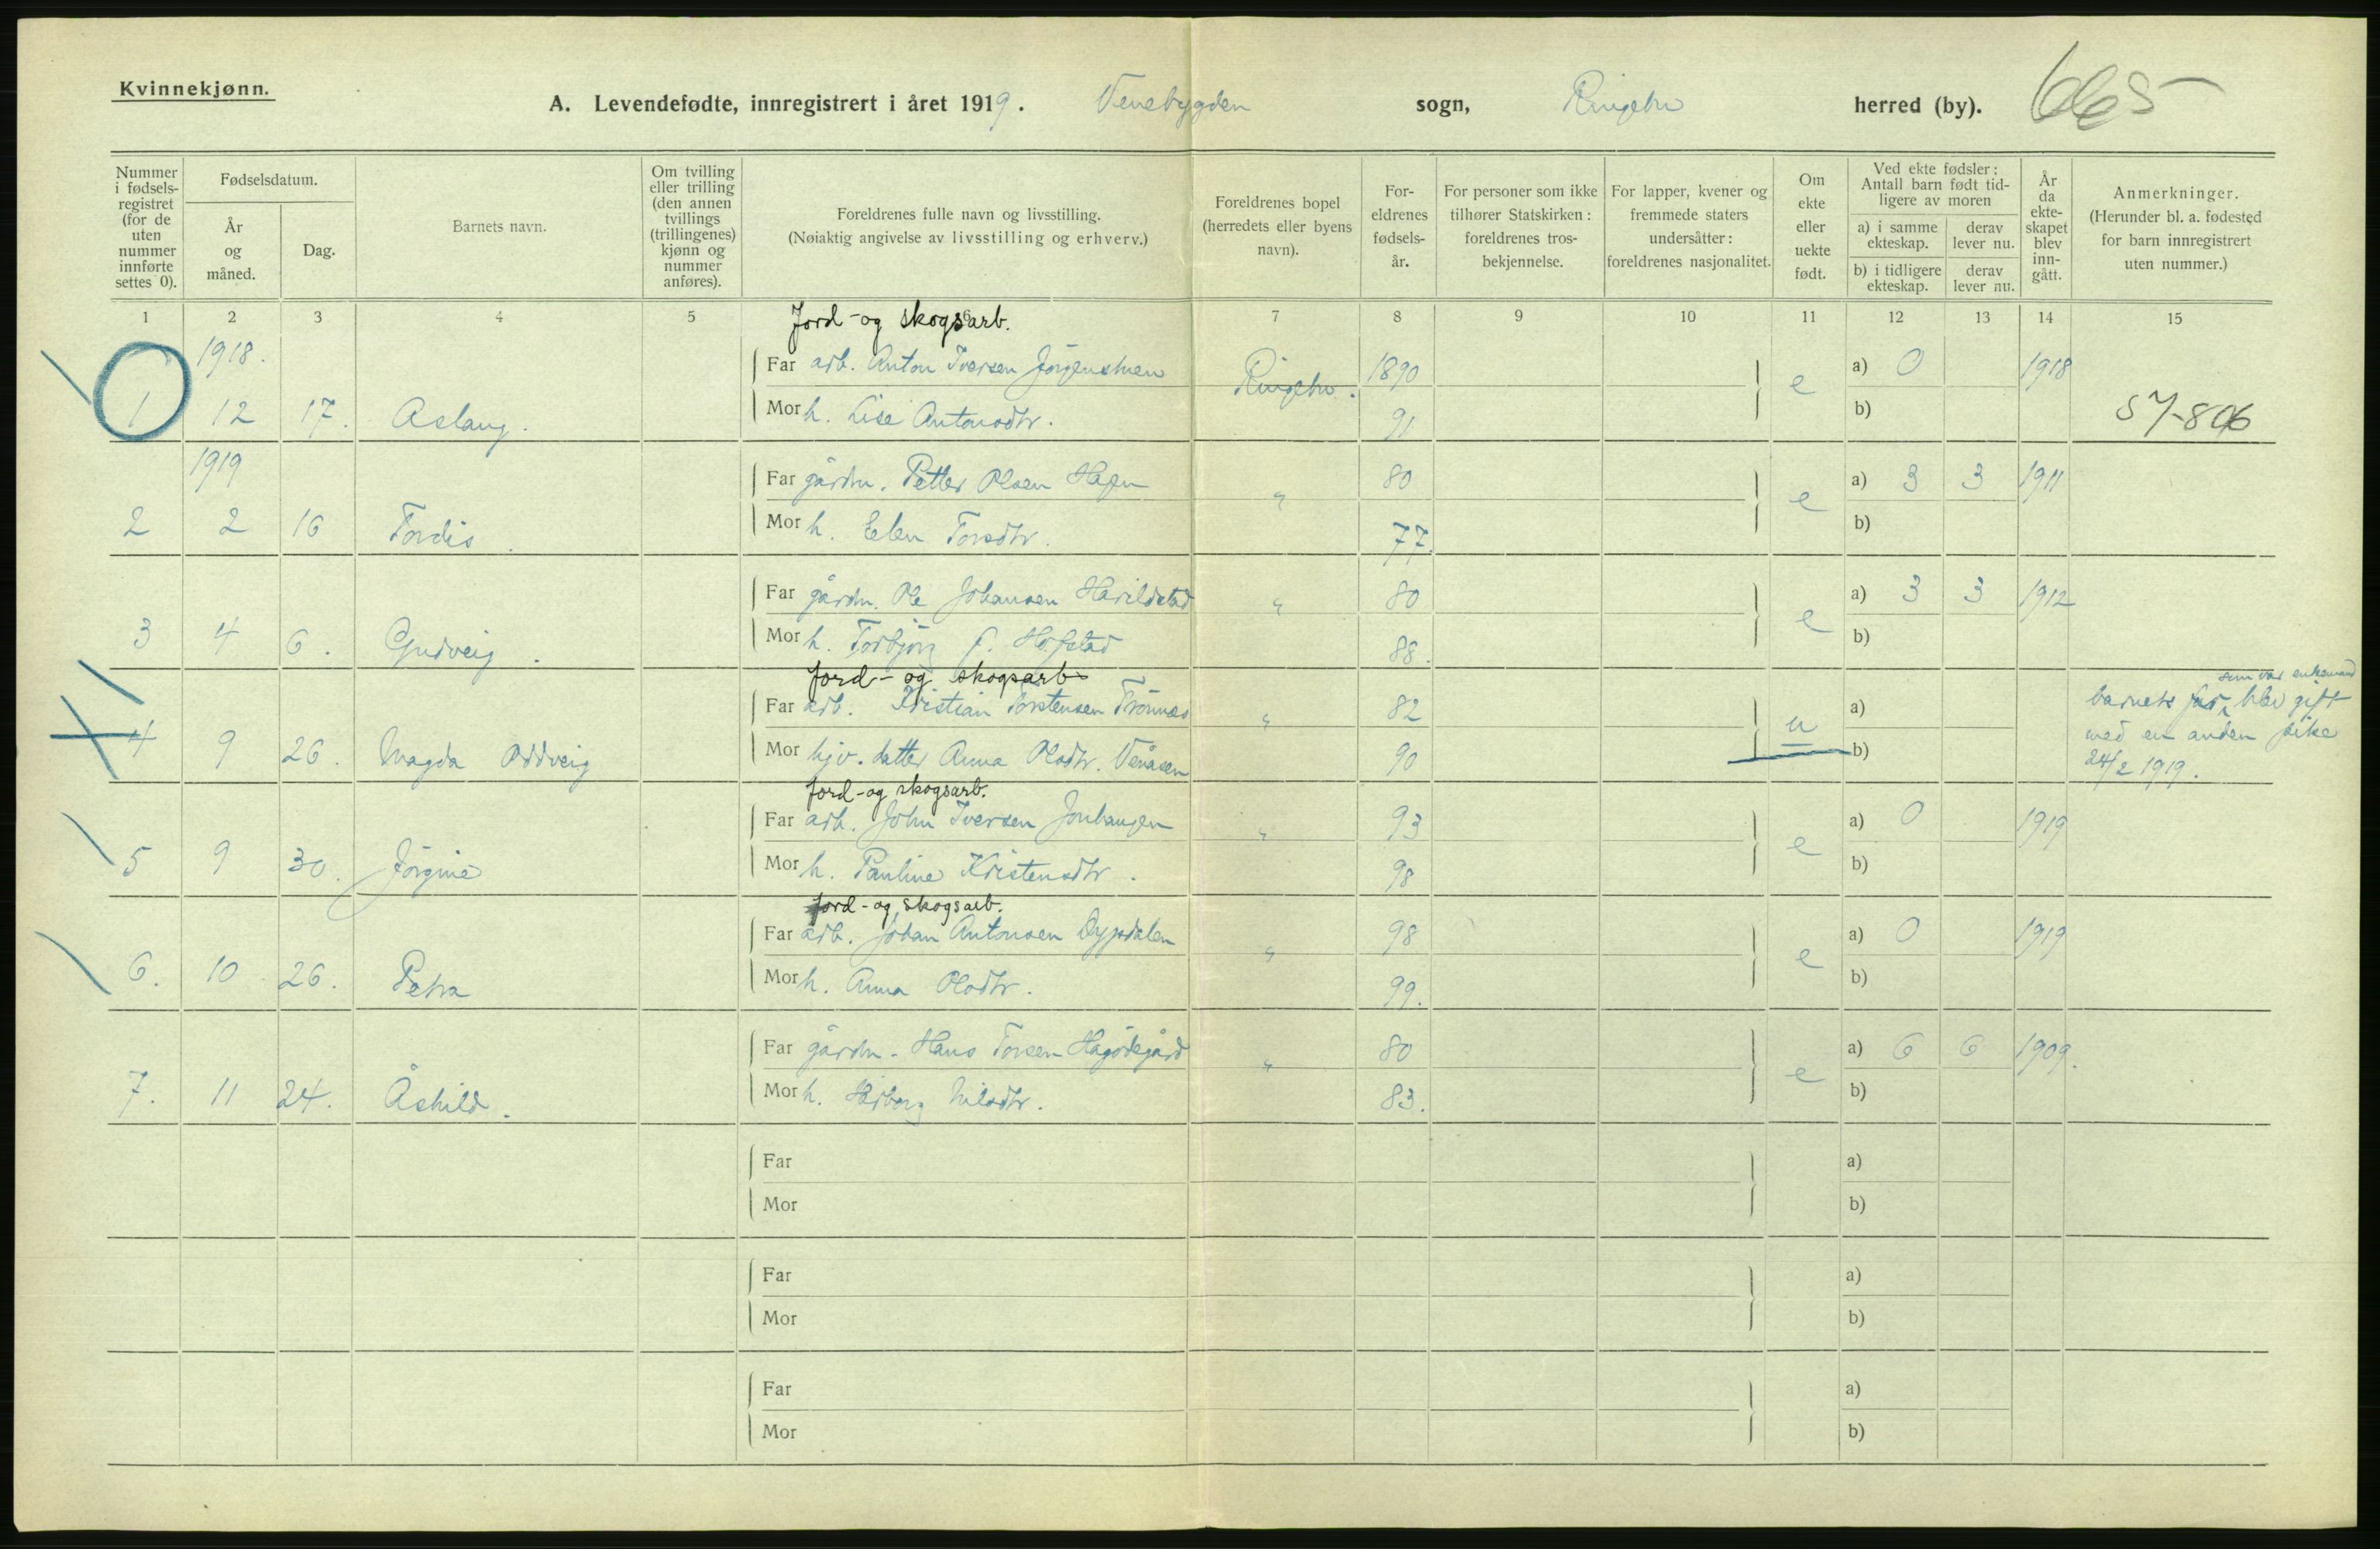 Kvinnekjønn.
A. Levendefødte, innregistrert i året 1919. Venebygden sogn, Ringebu herred (by). 665
Nummer i fødsels-registret (for de uten nummer innførte settes 0).
Fødselsdatum.
År og måned.
Dag.
Barnets navn.
Om tvilling eller trilling (den annen tvillings (trillingenes) kjønn og nummer anføres).
Foreldrenes fulle navn og livsstilling.
(Nøiaktig angivelse av livsstilling og erhverv.)
Foreldrenes bopel (herredets eller byens navn).
For-eldrenes fødsels-år.
For personer som ikke tilhører Statskirken: foreldrenes tros-bekjennelse.
For lapper, kvener og fremmede staters undersåtter: foreldrenes nasjonalitet.
Om ekte eller uekte født.
Ved ekte fødsler: Antall barn født tid-ligere av moren
a) i samme ekteskap.
derav lever nu.
b) i tidligere ekteskap.
derav lever nu.
År da ekte-skapet blev inn-gått.
Anmerkninger.
(Herunder bl. a. fødested for barn innregistrert uten nummer.)
1 2 3 4 5 6 7 8 9 10 11 12 13 14 15
Jord- og skogsarb.
1918.
Far arb. Anton Iversen Jörgenstuen Ringebu. 1890 e a) 0 1918
1 12 17. Aslaug. Mor h. Lise Antonsdtr. 91 b) 57-806
1919
Far gårdbr. Petter Olsen Hagen " 80 e a) 3 3 1911
2 2 16 Tordis. Mor h. Elen Torsdtr. 77. b)
Far gårdbr. Ole Johansen Harildstad " 80 e a) 3 3 1912
3 4 6. Gudveig. Mor h. Torbjörg f. Hofstad 88. b)
Jord- og skogsarb.
Far arb. Kristian Torstensen Trönnes " 82 u a)
4 9 26. Magda Oddveig Mor hjv. datter Anna Olsdtr. Venåsen 90 b)
som var enkemand
barnets far blev gift
med en anden pike
24/2 1919.
Jord- og skogsarb.
Far arb. John Iversen Jonhaugen " 93 e a) 0 1919
5 9 30. Jörgine Mor h. Pauline Kristensdtr. 98 b)
Jord- og skogsarb.
Far arb. Johan Antonsen Dypdalen " 98 e a) 0 1919
6. 10 26. Petra Mor h. Anna Olsdtr. 99. b)
Far gårdbr. Hans Torsen Hagödegård " 80 e a) 6 6 1909.
7. 11 24. Åshild. Mor h. Nilsdtr. 83. b)
Far a)
Mor b)
Far a)
Mor b)
Far a)
Mor b)